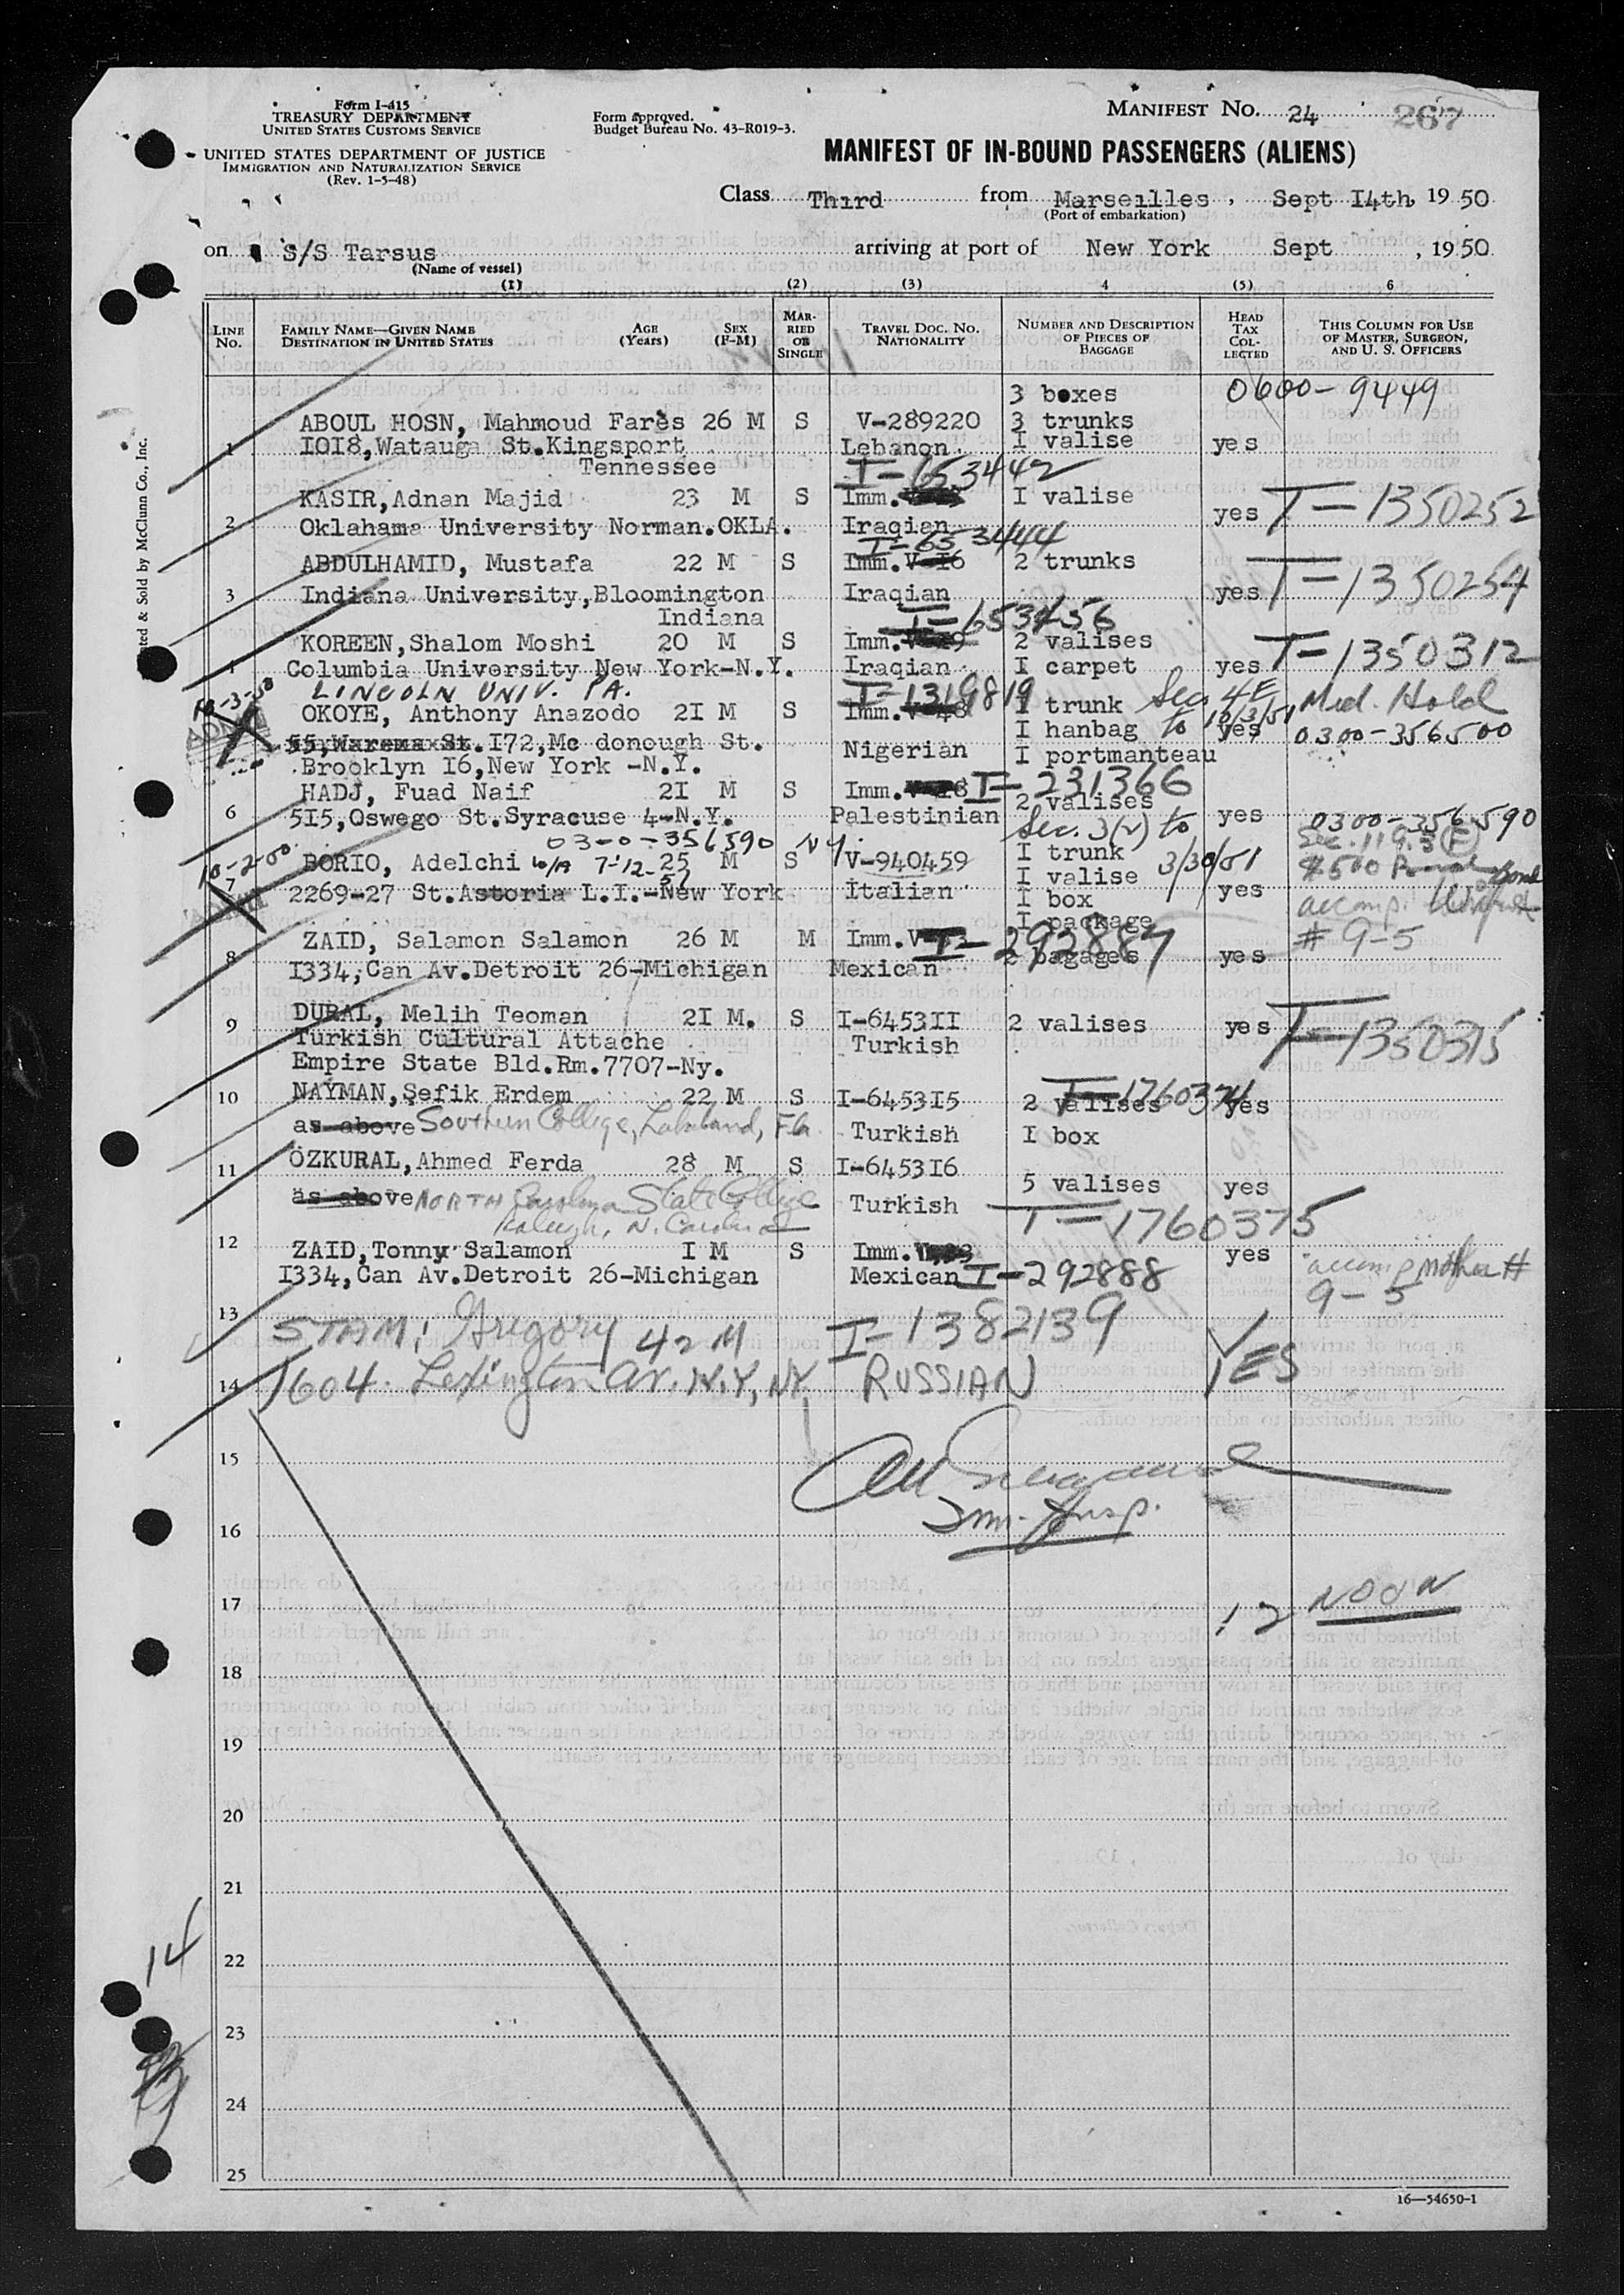 Form I-415
TREASURY DEPARTMENT
UNITED STATES CUSTOMS SERVICE
UNITED STATES DEPARTMENT OF JUSTICE
IMMIGRATION AND NATURALIZATION SERVICE
(Rev. 1-5-48)
Form approved.
Budget Bureau No. 43-R019-3.
MANIFEST NO. 24 267
MANIFEST OF IN-BOUND PASSENGERS (ALIENS)
Class Third from Marseilles, Sept I4th, 19 50
(Port of embarkation)
on S/S Tarsus arriving at port of New York Sept , 19 50
(Name of vessel)
(1) (2) (3) 4 (5) 6
LINE NO. FAMILY NAME—GIVEN NAME DESTINATION IN UNITED STATES AGE (Years) SEX (F-M) MARRIED OR SINGLE TRAVEL DOC. NO. NATIONALITY NUMBER AND DESCRIPTION OF PIECES OF BAGGAGE HEAD TAX COLLECTED THIS COLUMN FOR USE OF MASTER, SURGEON, AND U. S. OFFICERS
3 boxes 0600-9449
ABOUL HOSN, Mahmoud Farès 26 M S V-289220 3 trunks
1 IOI8,Watauga St.Kingsport Lebanon. I valise yes
Tennessee I-653442
KASIR,Adnan Majid 23 M S Imm. I valise T-1350252
2 Oklahama University Norman.OKLA. Iraqian yes
I-653444
ABDULHAMID, Mustafa 22 M S Imm.V-I6 2 trunks T-1350254
3 Indiana University,Bloomington Iraqian yes
Indiana I-653456
KOREEN,Shalom Moshi 20 M S Imm. 2 valises T-1350312
4 Columbia University New York-N.Y. Iraqian I carpet yes
LINCOLN UNIV. PA. I-1319819 Sec. 4E Med. Hold
10-3-50
OKOYE, Anthony Anazodo 2I M S Imm. I trunk to 10/3/51
I72,Mc donough St. Nigerian I hanbag yes 0300-356500
Brooklyn I6,New York -N.Y. I portmanteau
HADJ, Fuad Naif 2I M S Imm. I-231366
6 5I5,Oswego St.Syracuse 4-N.Y. Palestinian 2 valises yes 0300-356590
03-0-356590 NY Sec. 3(2) to 3/30/51 Sec. 11 9.3(F)
10-2-50
BORIO, Adelchi W/A 7-12-51 25 M S V-940459 I trunk $500 Bond
7 2269-27 St.Astoria L.I.-New York Italian I valise yes
I box
I package
ZAID, Salamon Salamon 26 M M Imm. I-292887 accomp. # 9-5
8 I334,Can Av.Detroit 26-Michigan Mexican 2 bagages yes
9 DURAL, Melih Teoman 2I M. S I-6453II 2 valises yes T-1350315
Turkish Cultural Attache Turkish
Empire State Bld.Rm.7707-Ny.
10 NAYMAN,Şefik Erdem 22 M S I-6453I5 2 valises T-1760374 yes
as above Southern College, Lakeland, Fla. Turkish I box
11 ÖZKURAL,Ahmed Ferda 28 M S I-6453I6 5 valises yes
as above NORTH Carolina State College Turkish T-1760375
Raleigh, N. Carolina
12 ZAID,Tonny Salamon I M S Imm. yes accomp mother #
I334,Can Av.Detroit 26-Michigan Mexican I-292888 9-5
13 STAM, Gregory 42 M I-1382139 YES
14 1604 Lexington Av. N.Y, NY. RUSSIAN
15
Imm. Insp.
16
17 12 NOON
18
19
20
21
14
22
23
24
25
16—54650-1
& Sold by McClunn Co., Inc.